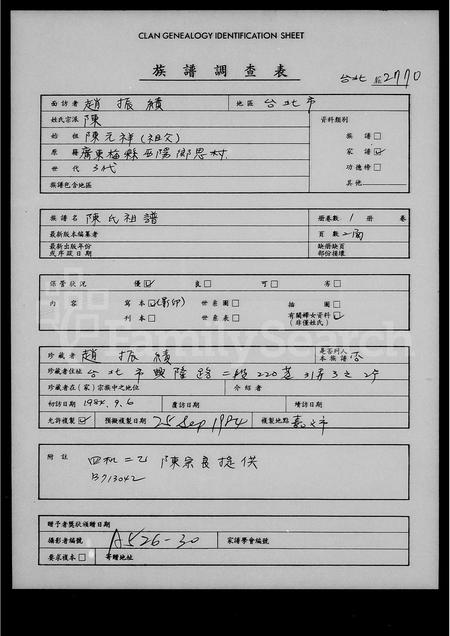 CLAN GENEALOGY IDENTIFICATION SHEET
族譜調查表
台北 2770
面訪者 趙振績 地區 台北市
姓氏宗派 陳 資料類別
始祖 陳元祥(祖父) 族譜□
原籍 廣東梅縣 村 家譜☑
世代 3代 功德榜□
族譜包含地區 其他
族譜名 陳氏祖譜 冊卷數 1 冊 卷
最新版本編纂者 頁數
最新出版年份或序跋日期 缺冊缺頁部份損壞
保管狀況 優☑ 良□ 可□ 劣□
內容 寫本☑(影印) 世系圖□ 插圖□
刊本□ 世系表□ 有關婦女資料☑(非僅姓氏)
FamilySearch
珍藏者 趙振績 是否列入本族譜 否
珍藏者住址 台北市興隆路二段220巷
珍藏者在(家)宗族中之地位 介紹者
初訪日期 1984.9.6 覆訪日期 續訪日期
允許複製☑ 預擬複製日期 25 Sep 1984 複製地點 嘉義市
附註 四机二乙 陳宗良提供
B713042
贈予者獎狀頒贈日期
攝影者編號 A526-30 家譜學會編號
要求複本□ 寄贈地址